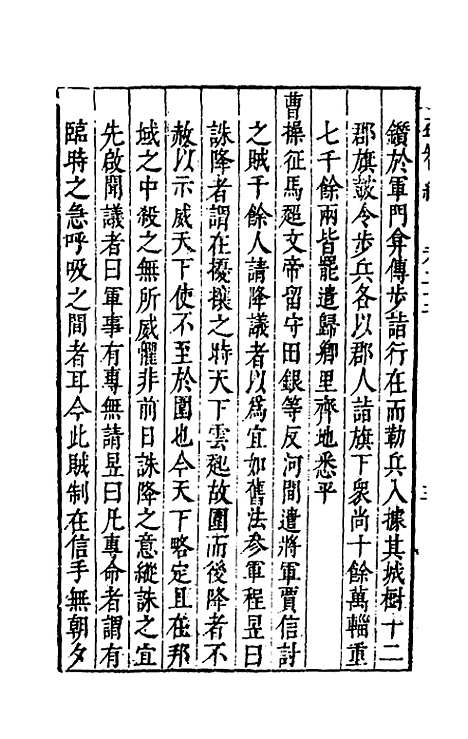 鑽於軍門弇傳步詣行在而勒兵入據其城樹十二
郡旗鼓令步兵各以郡人詣旗下衆尚十餘萬輜重
七千餘兩皆罷遣歸鄉里齊地悉平
曹操征馬超文帝留守田銀等反河間遣將軍賈信討
之賊千餘人請降議者以爲宜如舊法參軍程昱曰
誅降者謂在擾攘之時天下雲起故圍而後降者不
赦以示威天下使不至於圍也今天下略定且在邦
域之中殺之無所威懼非前日誅降之意縱誅之宜
先啟聞議者曰軍事有專無請昱曰凡專命者謂有
臨時之急呼吸之間者耳今此賊制在信手無朝夕